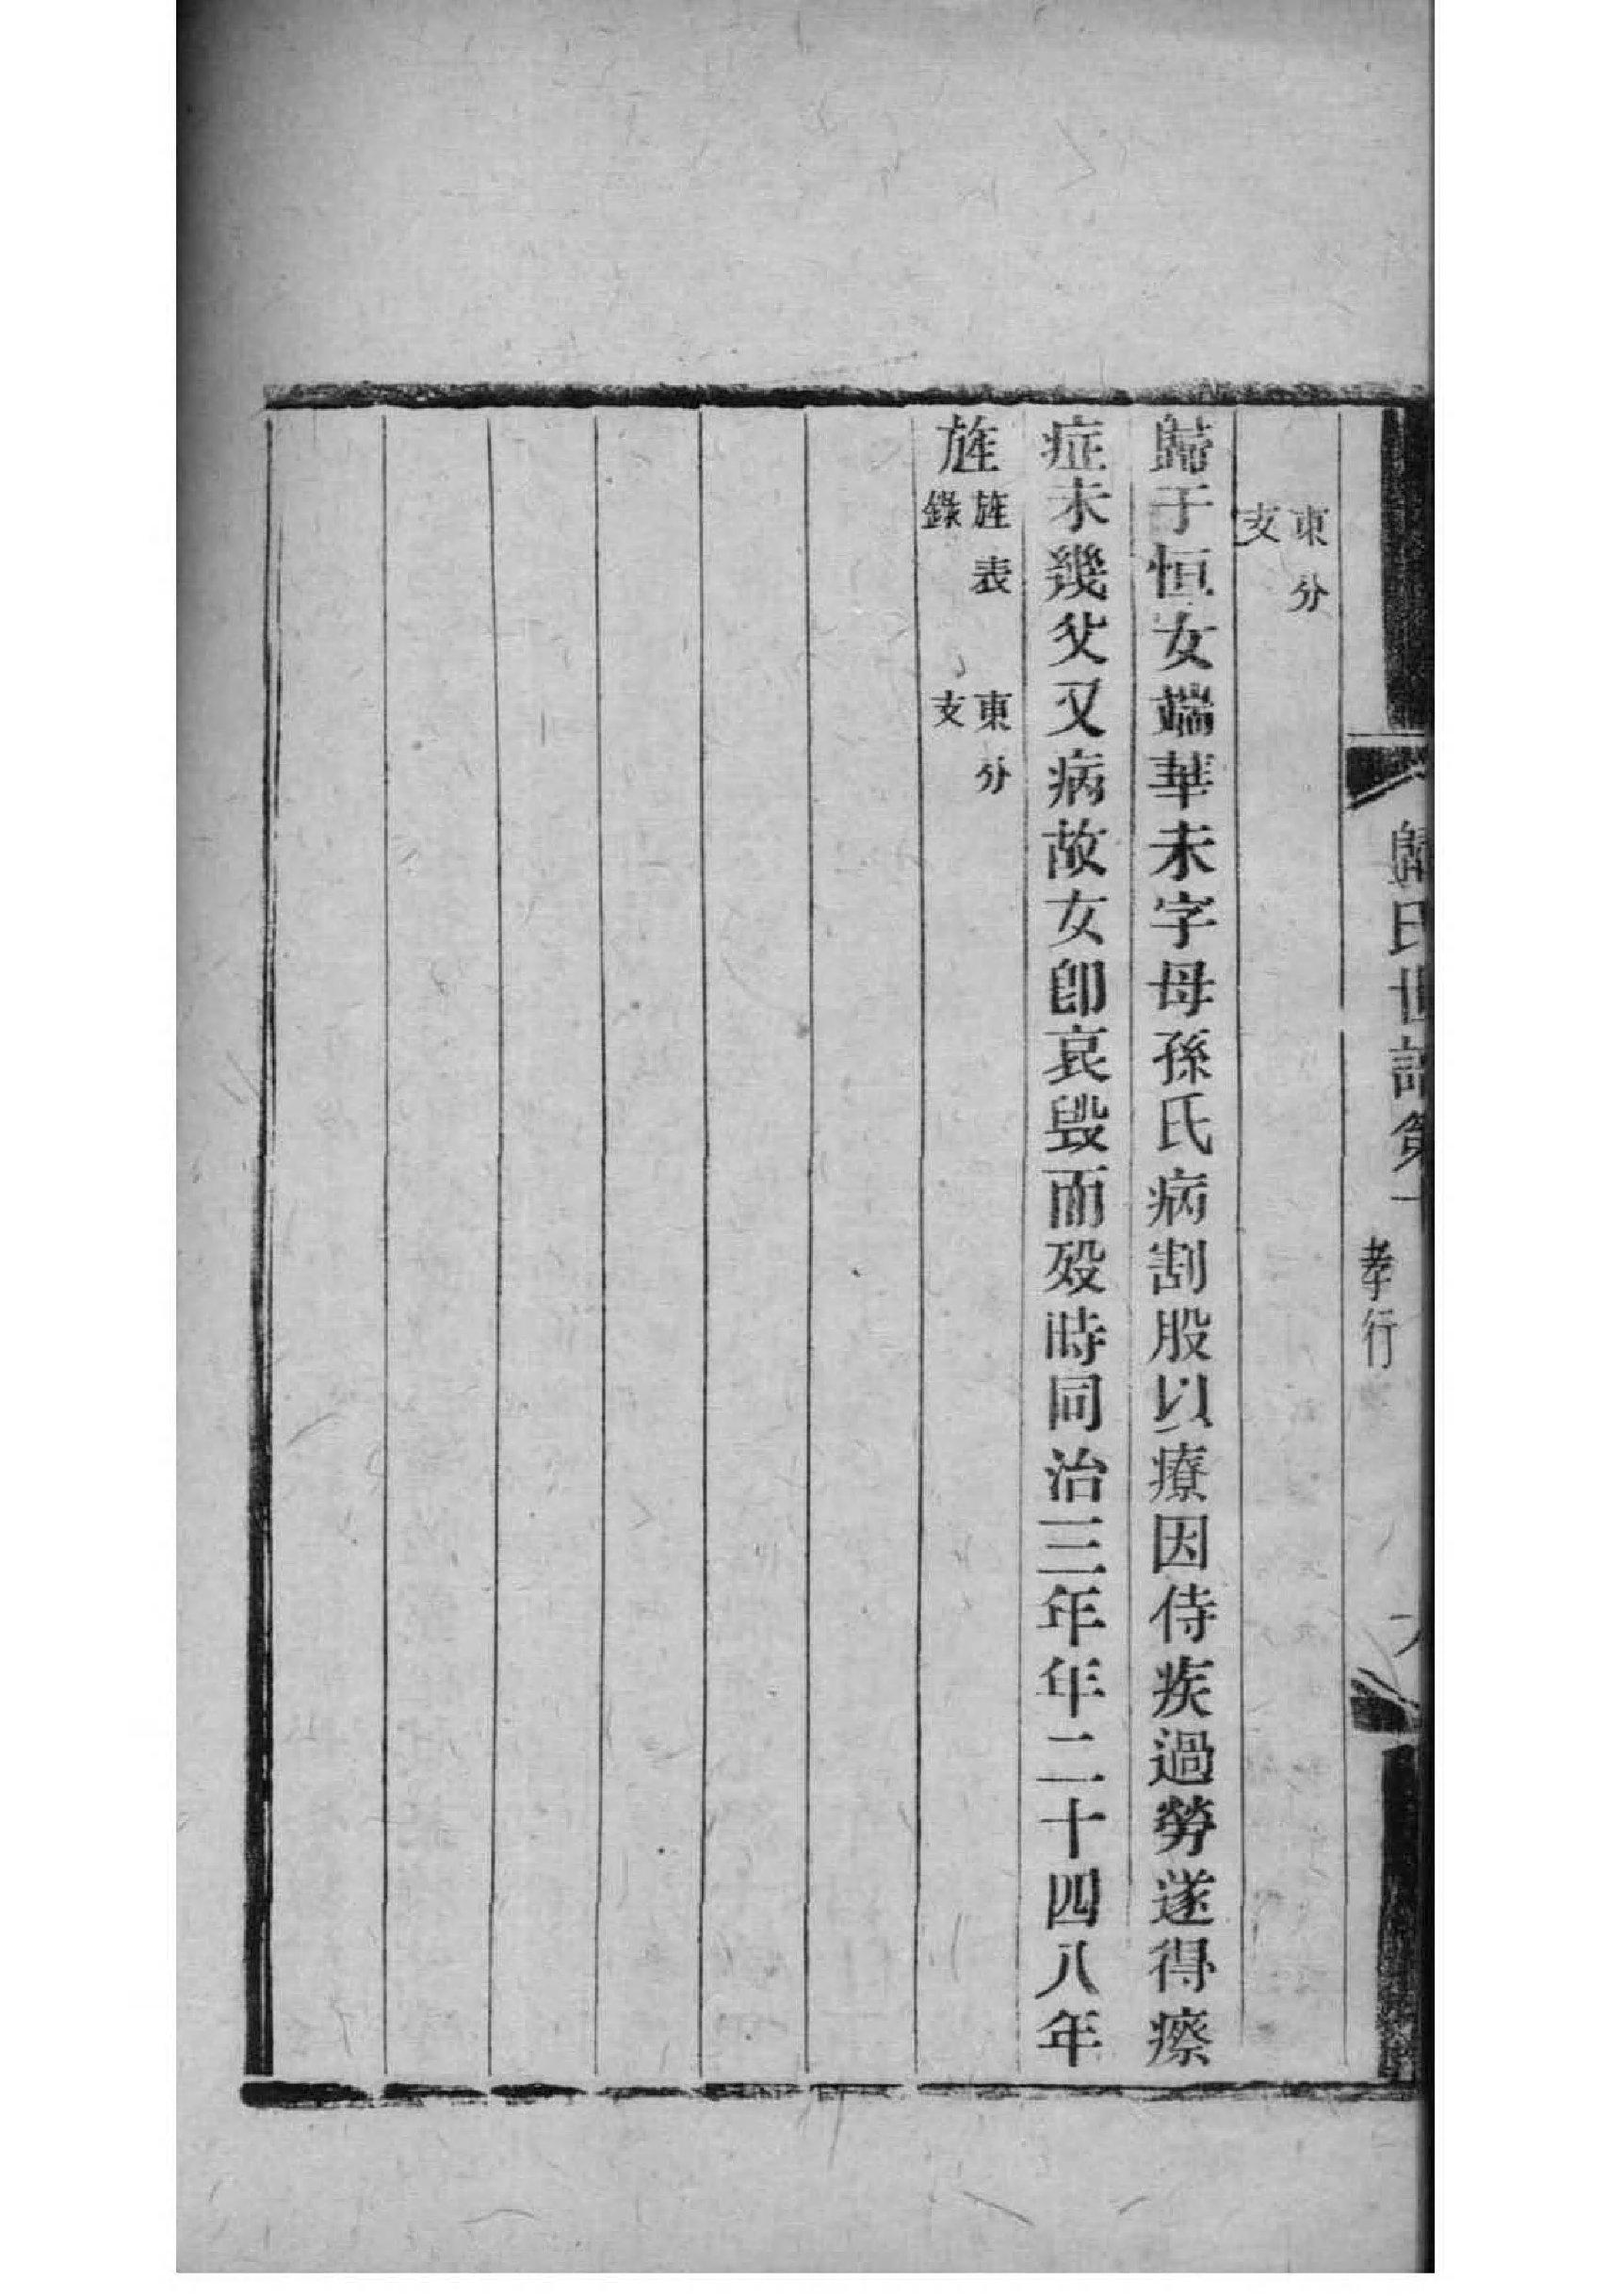 歸氏世譜第
孝行
東分支
歸于恒女端華未字母孫氏病割股以療因侍疾過勞遂得瘵
症未幾父又病故女卽哀毀而歿時同治三年年二十四八年
旌旌表錄 東分支